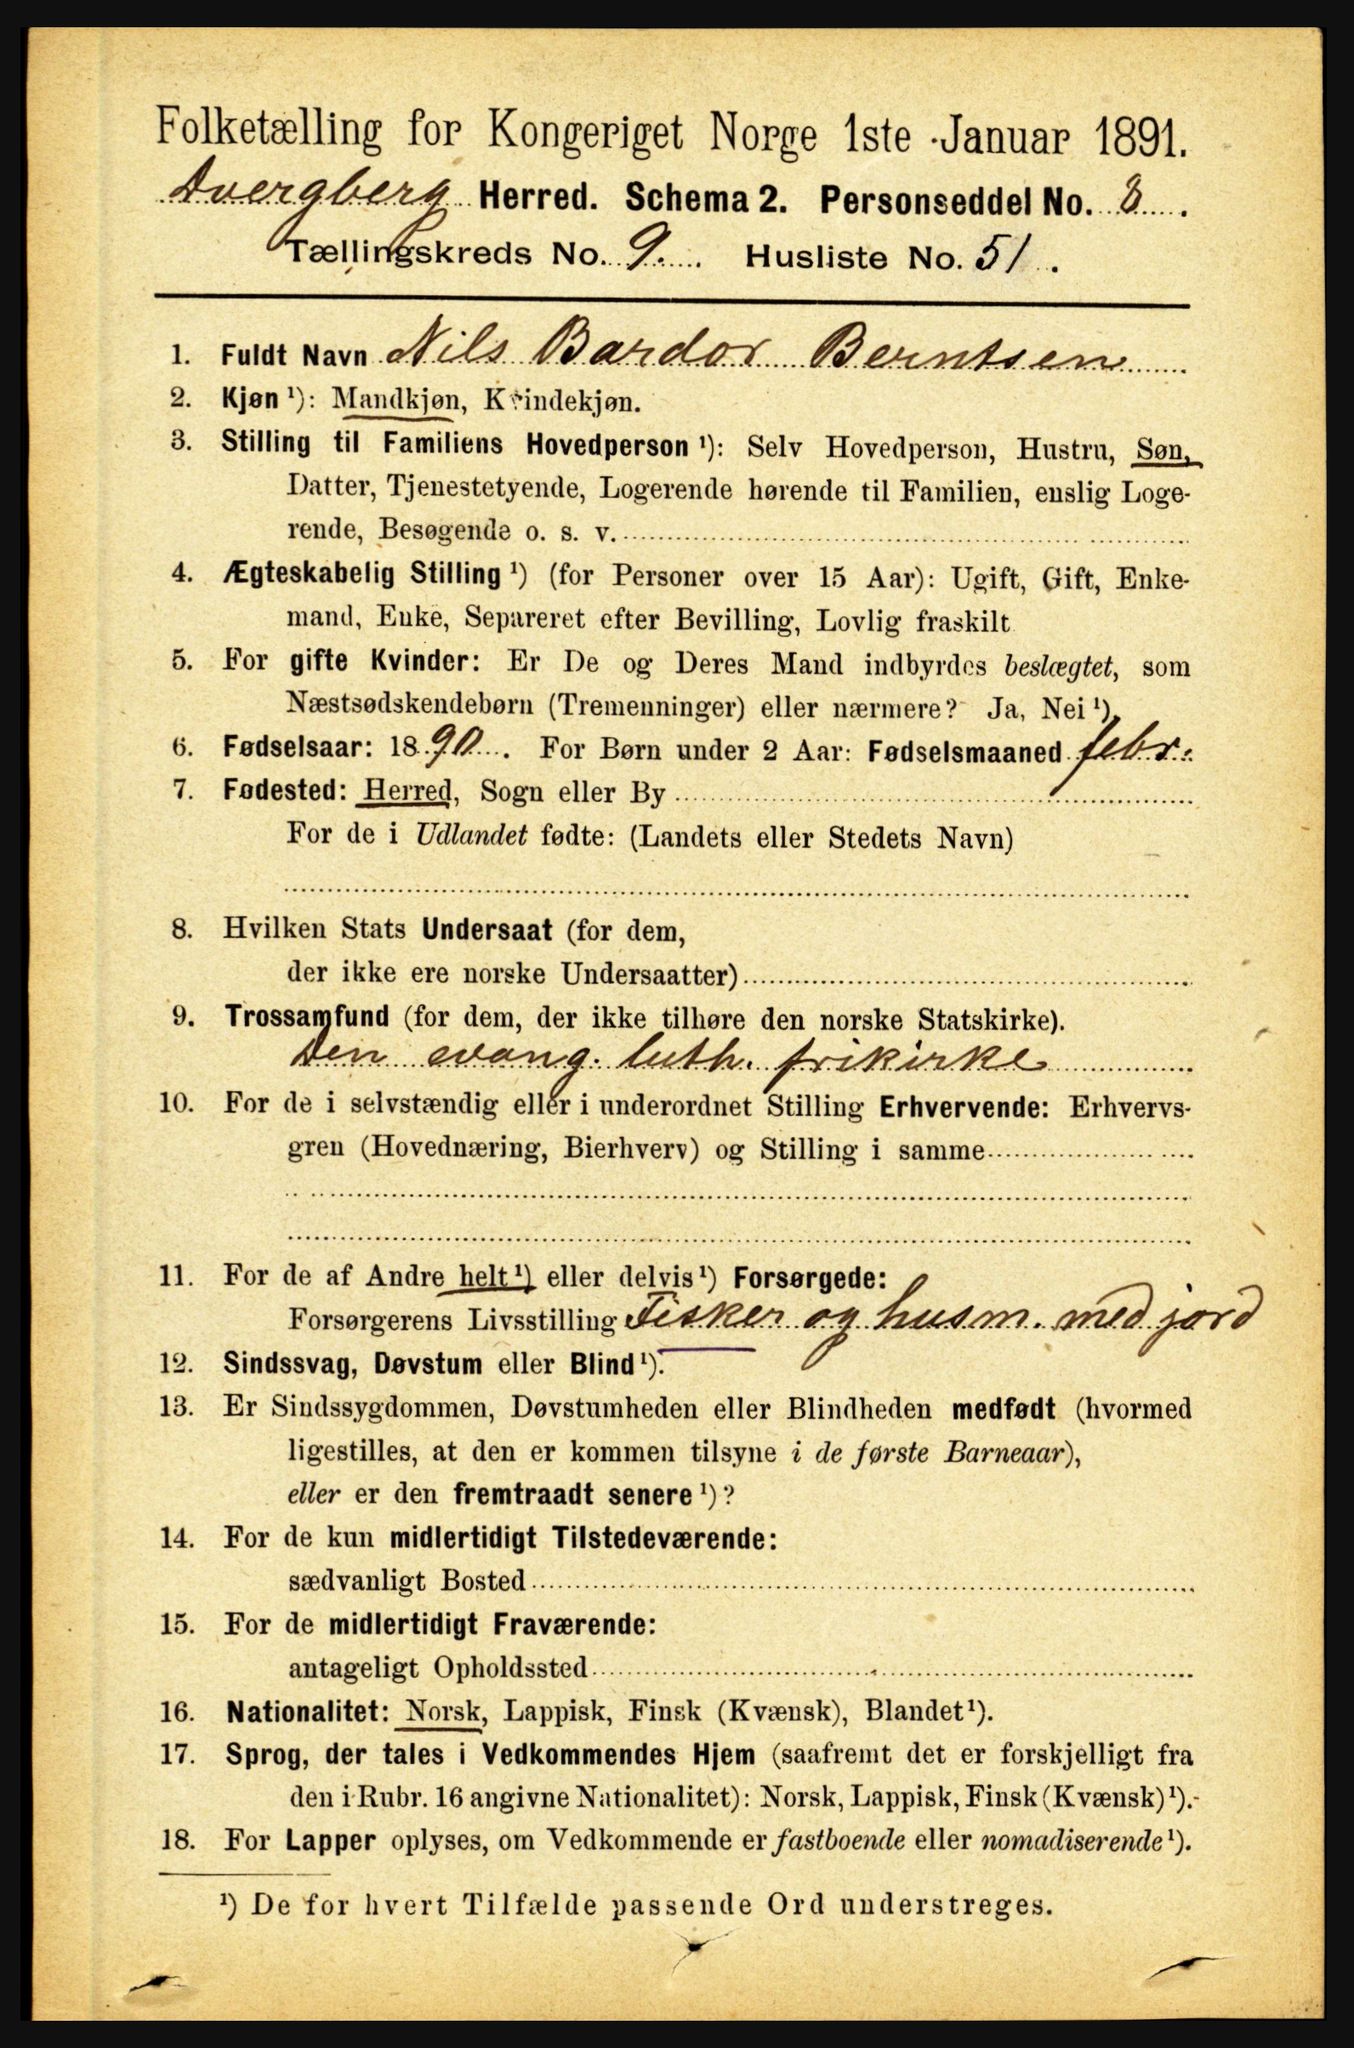 Folketælling for Kongeriget Norge 1ste Januar 1891.
Dvergberg Herred. Schema 2. Personseddel No. 8.
Tællingskreds No. 9. Husliste No. 51.
1. Fuldt Navn Nils Bardor Berntsen
2. Kjøn ¹): Mandkjøn, Kvindekjøn.
3. Stilling til Familiens Hovedperson ¹): Selv Hovedperson, Hustru, Søn,
Datter, Tjenestetyende, Logerende hørende til Familien, enslig Loge-
rende, Besøgende o. s. v.
4. Ægteskabelig Stilling ¹) (for Personer over 15 Aar): Ugift, Gift, Enke-
mand, Enke, Separeret efter Bevilling, Lovlig fraskilt
5. For gifte Kvinder: Er De og Deres Mand indbyrdes beslægtet, som
Næstsødskendebørn (Tremenninger) eller nærmere? Ja, Nei ¹)
6. Fødselsaar: 1890. For Børn under 2 Aar: Fødselsmaaned febr.
7. Fødested: Herred, Sogn eller By
For de i Udlandet fødte: (Landets eller Stedets Navn)
8. Hvilken Stats Undersaat (for dem,
der ikke ere norske Undersaatter)
9. Trossamfund (for dem, der ikke tilhøre den norske Statskirke).
Den evang. luth. frikirke
10. For de i selvstændig eller i underordnet Stilling Erhvervende: Erhvervs-
gren (Hovednæring, Bierhverv) og Stilling i samme
11. For de af Andre helt ¹) eller delvis ¹) Forsørgede:
Forsørgerens Livsstilling Fisker og husm. med jord
12. Sindssvag, Døvstum eller Blind ¹).
13. Er Sindssygdommen, Døvstumheden eller Blindheden medfødt (hvormed
ligestilles, at den er kommen tilsyne i de første Barneaar),
eller er den fremtraadt senere ¹)?
14. For de kun midlertidigt Tilstedeværende:
sædvanligt Bosted
15. For de midlertidigt Fraværende:
antageligt Opholdssted
16. Nationalitet: Norsk, Lappisk, Finsk (Kvænsk), Blandet ¹).
17. Sprog, der tales i Vedkommendes Hjem (saafremt det er forskjelligt fra
den i Rubr. 16 angivne Nationalitet): Norsk, Lappisk, Finsk (Kvænsk) ¹).
18. For Lapper oplyses, om Vedkommende er fastboende eller nomadiserende ¹).
¹) De for hvert Tilfælde passende Ord understreges.